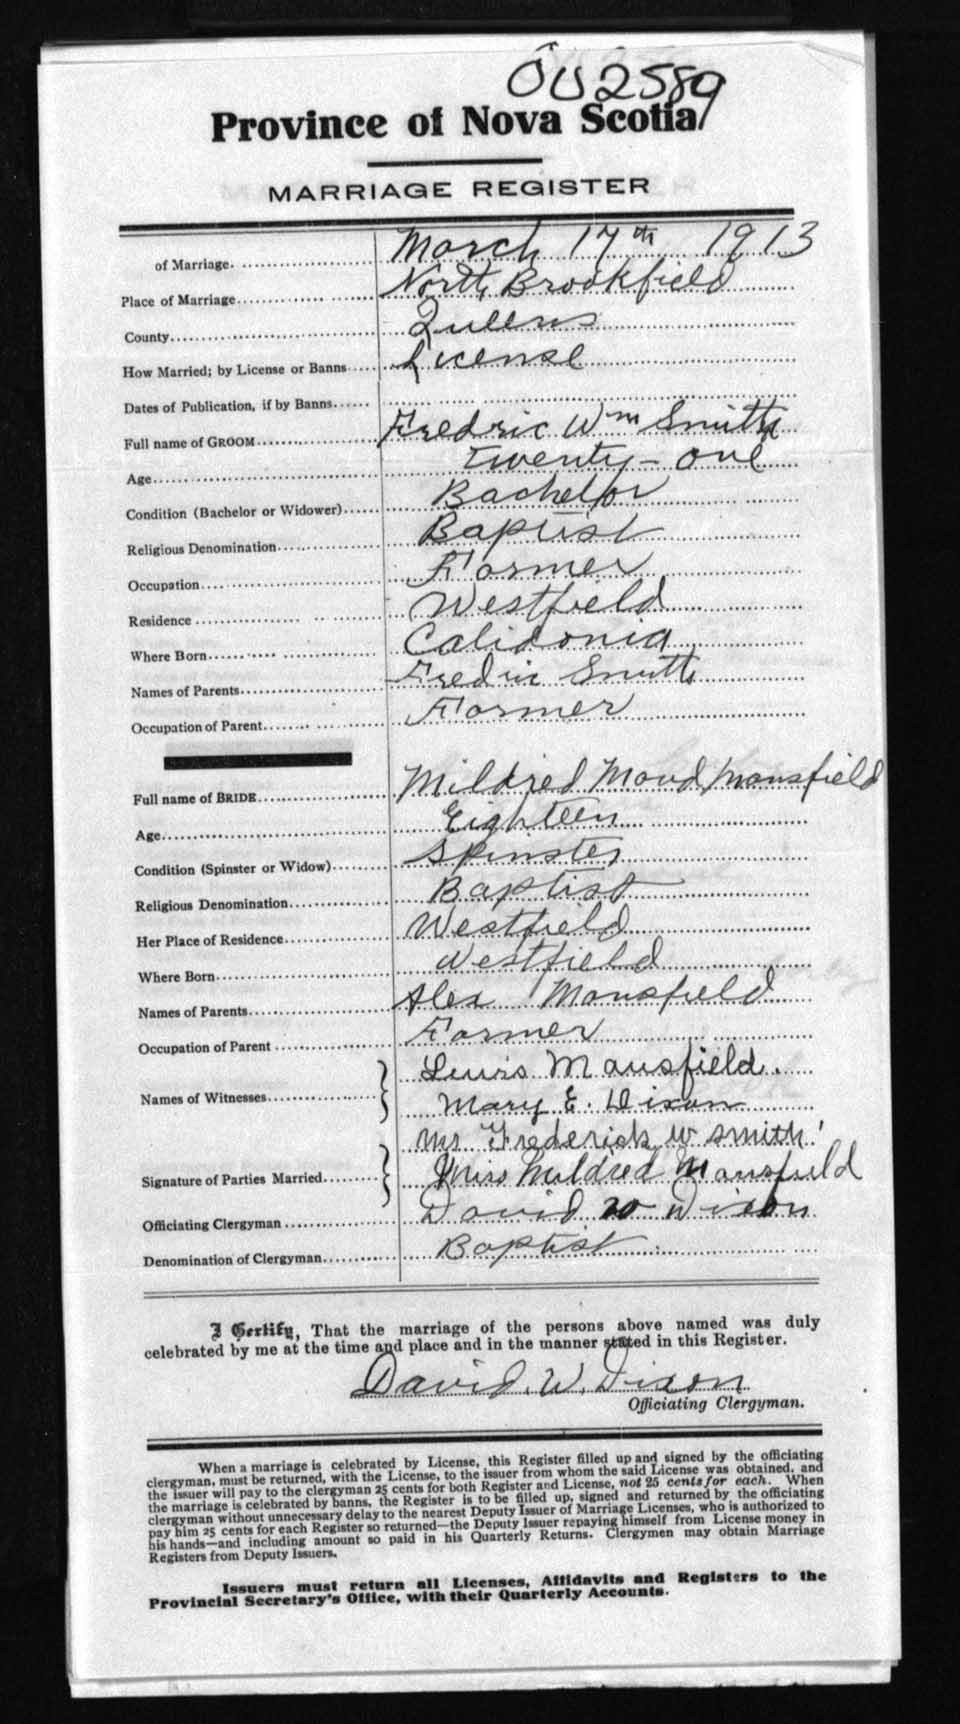 002589
Province of Nova Scotia
MARRIAGE REGISTER
of Marriage. March 17th 1913
Place of Marriage North Brookfield
County Queens
How Married; by License or Banns License
Dates of Publication, if by Banns
Full name of GROOM Fredric Wm Smith
Age Twenty-one
Condition (Bachelor or Widower) Bachelor
Religious Denomination Baptist
Occupation Farmer
Residence Westfield
Where Born Calidonia
Names of Parents Fredric Smith
Occupation of Parent Farmer
Full name of BRIDE Mildred Maud Mansfield
Age Eighteen
Condition (Spinster or Widow) Spinster
Religious Denomination Baptist
Her Place of Residence Westfield
Where Born Westfield
Names of Parents Alex Mansfield
Occupation of Parent Farmer
Names of Witnesses Lewis Mansfield.
Mary E. Dixon
Signature of Parties Married Mr Frederick W Smith
Miss Mildred Mansfield
Officiating Clergyman David W Dixon
Denomination of Clergyman Baptist
I Certify, That the marriage of the persons above named was duly
celebrated by me at the time and place and in the manner stated in this Register.
David. W. Dixon
Officiating Clergyman.
When a marriage is celebrated by License, this Register filled up and signed by the officiating
clergyman, must be returned, with the License, to the issuer from whom the said License was obtained, and
the issuer will pay to the clergyman 25 cents for both Register and License, not 25 cents for each. When
the marriage is celebrated by banns, the Register is to be filled up, signed and returned by the officiating
clergyman without unnecessary delay to the nearest Deputy Issuer of Marriage Licenses, who is authorized to
pay him 25 cents for each Register so returned—the Deputy Issuer repaying himself from License money in
his hands—and including amount so paid in his Quarterly Returns. Clergymen may obtain Marriage
Registers from Deputy Issuers.
Issuers must return all Licenses, Affidavits and Registers to the
Provincial Secretary's Office, with their Quarterly Accounts.